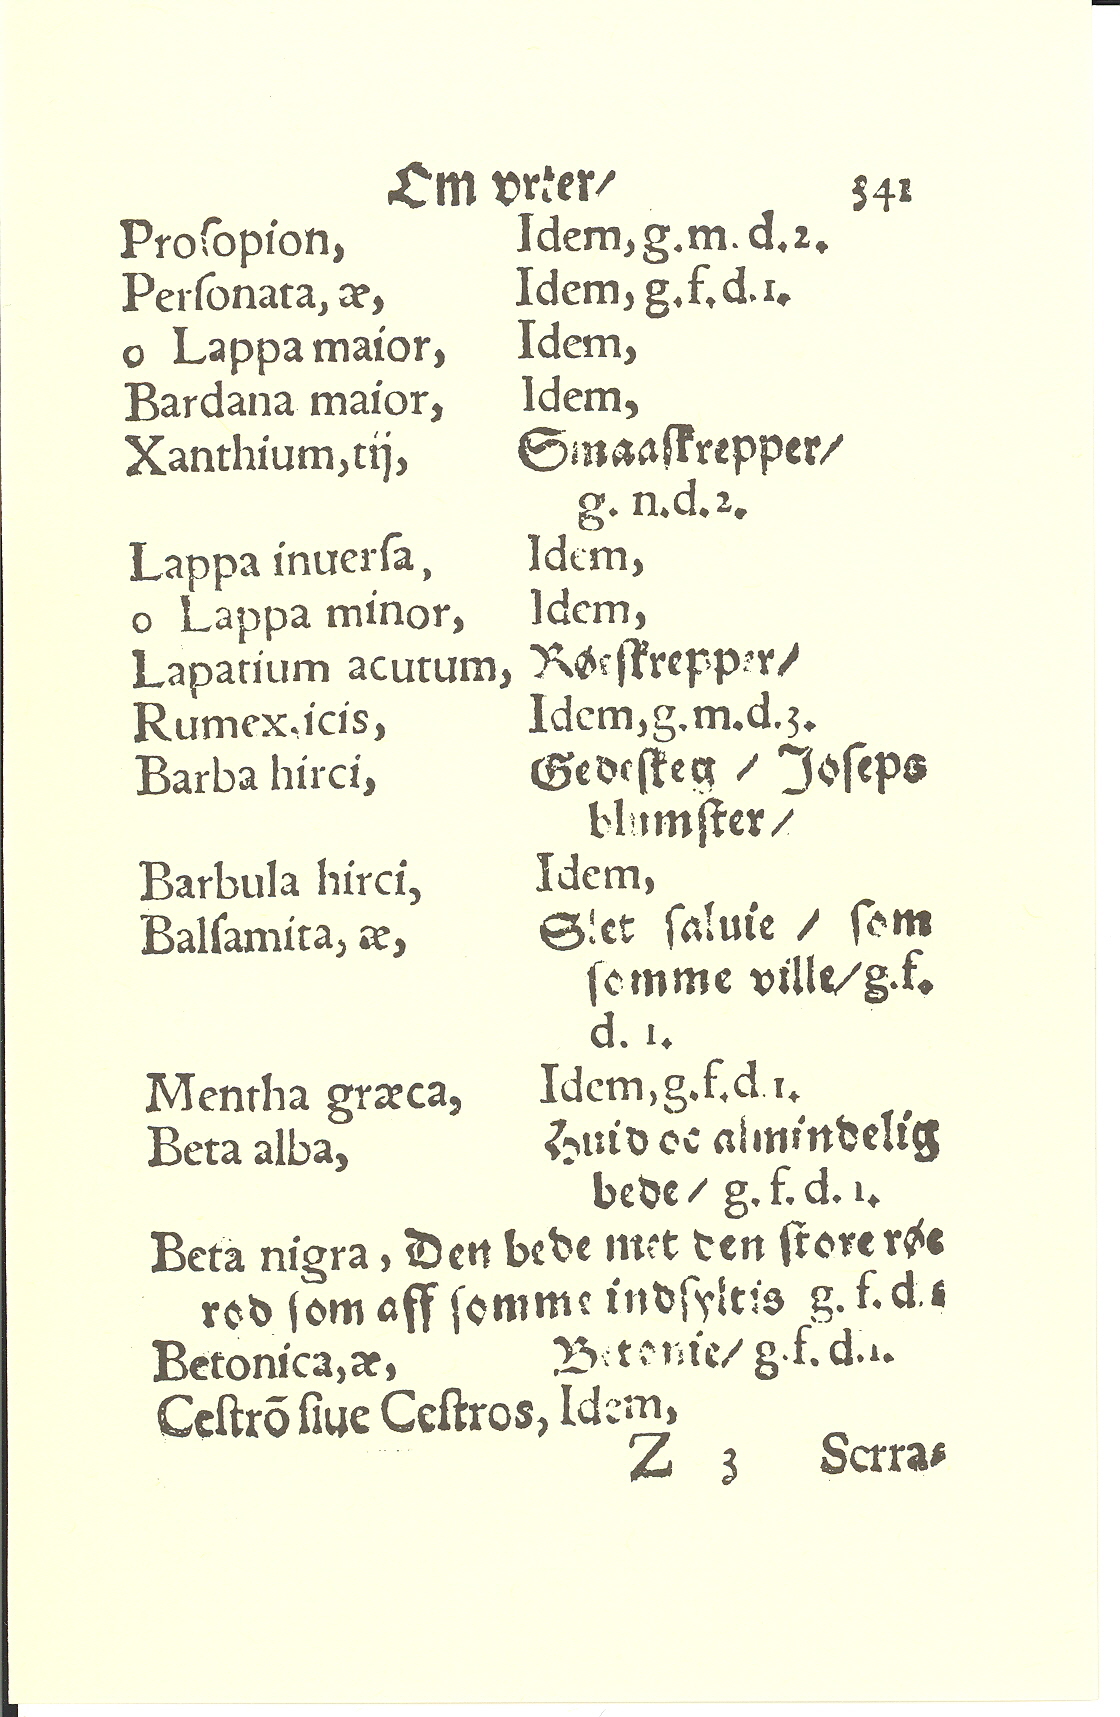 Om vrter/ 341
Proſopion, Idem, g.m. d.2.
Perſonata, æ, Idem, g.f.d.1.
o Lappa maior, Idem,
Bardana maior, Idem,
Xanthium, tij, Smaaſkrepper/
g. n.d.2.
Lappa inuerſa, Idem,
o Lappa minor, Idem,
Lapatium acutum, Røeſkrepper/
Rumex.icis, Idem, g.m.d.3.
Barba hirci, Gedeſkeg / Joſeps
blumſter/
Barbula hirci, Idem,
Balſamita, æ, Slet ſaluie / ſom
ſomme ville/ g.f.
d. 1.
Mentha græca, Idem, g.f.d.1.
Beta alba, Huid oc almindelig
bede/ g. f. d. 1.
Beta nigra, Den bede met den ſtore røe
rod ſom aff ſomme indſyltis g. f. d. 1
Betonica, æ, Betonie/ g.f. d.1.
Ceſtrõ ſiue Ceſtros, Idem,
Z 3 Serra⸗